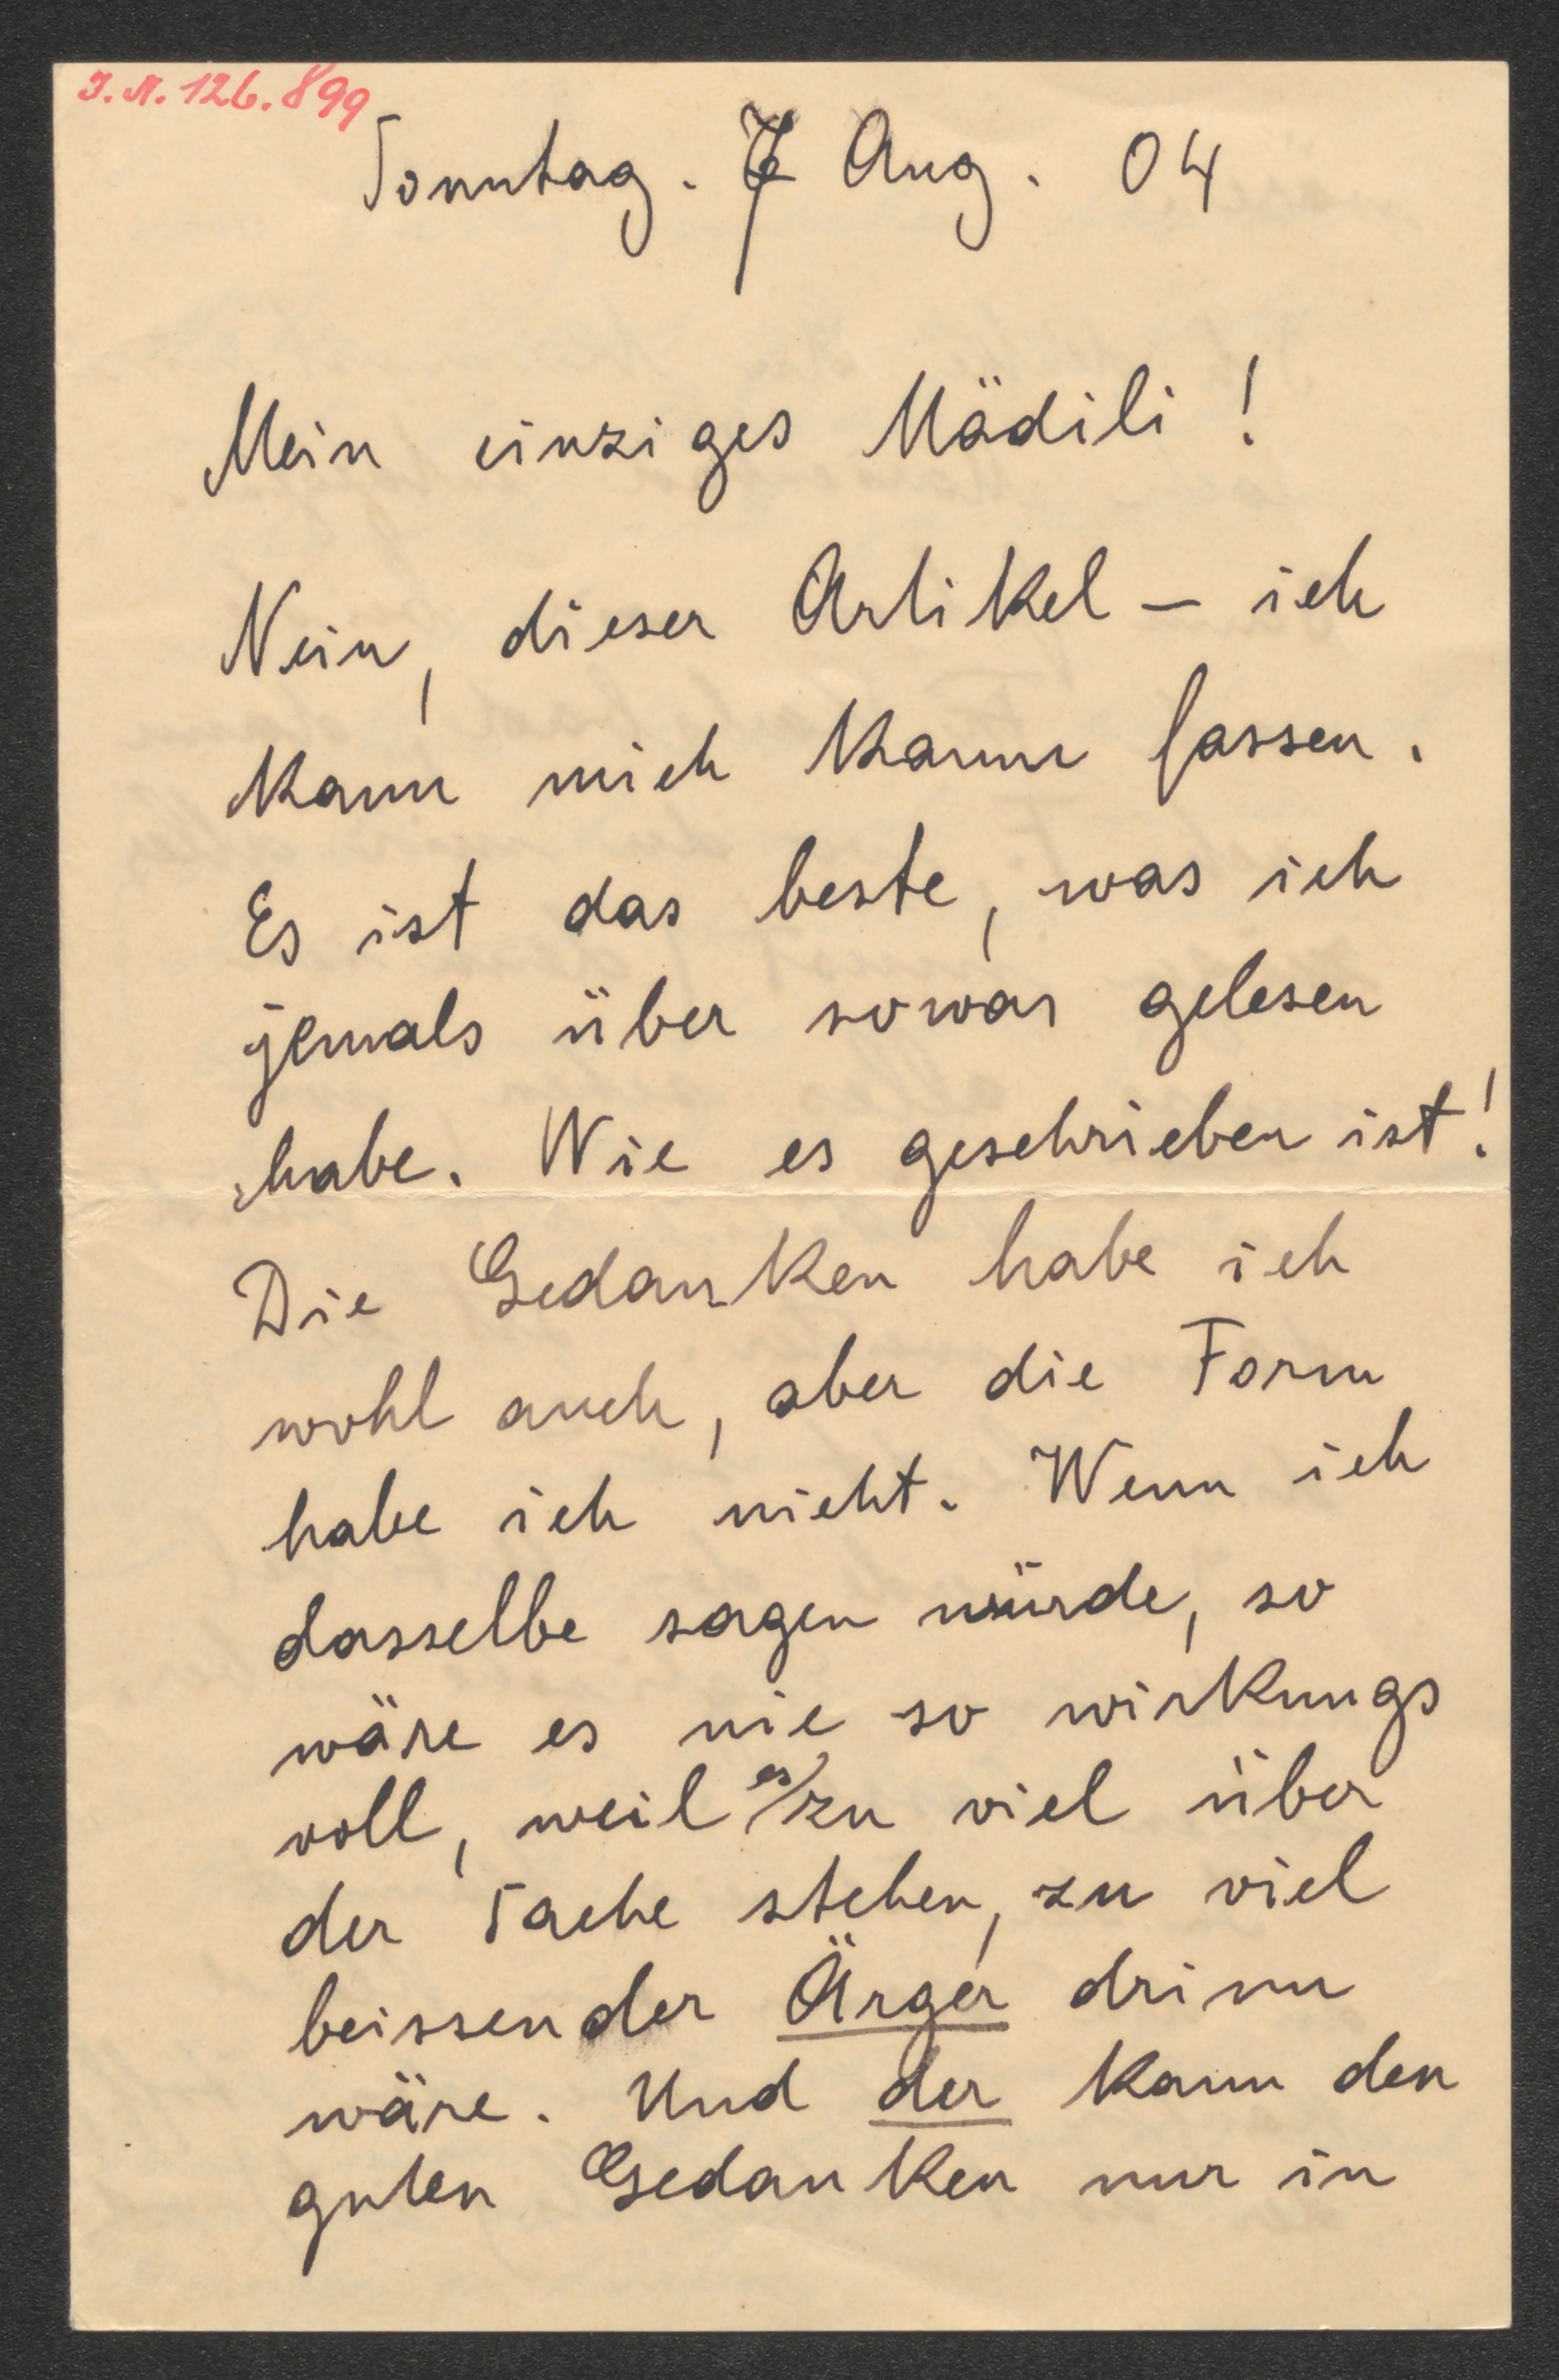 J.N. 126.899
Sonntag. 7 Aug. 04
Mein einziges Mädili!
Nein, dieser Artikel – ich
kann mich kaum fassen.
Es ist das beste, was ich
jemals über sowas gelesen
habe. Wie es geschrieben ist!
Die Gedanken habe ich
wohl auch, aber die Form
habe ich nicht. Wenn ich
dasselbe sagen würde, so
wäre es nie so wirkungs
voll, weil es zu viel über
der Sache stehen, zu viel
beissender Ärger drinn
wäre. Und der kann den
guten Gedanken nur in